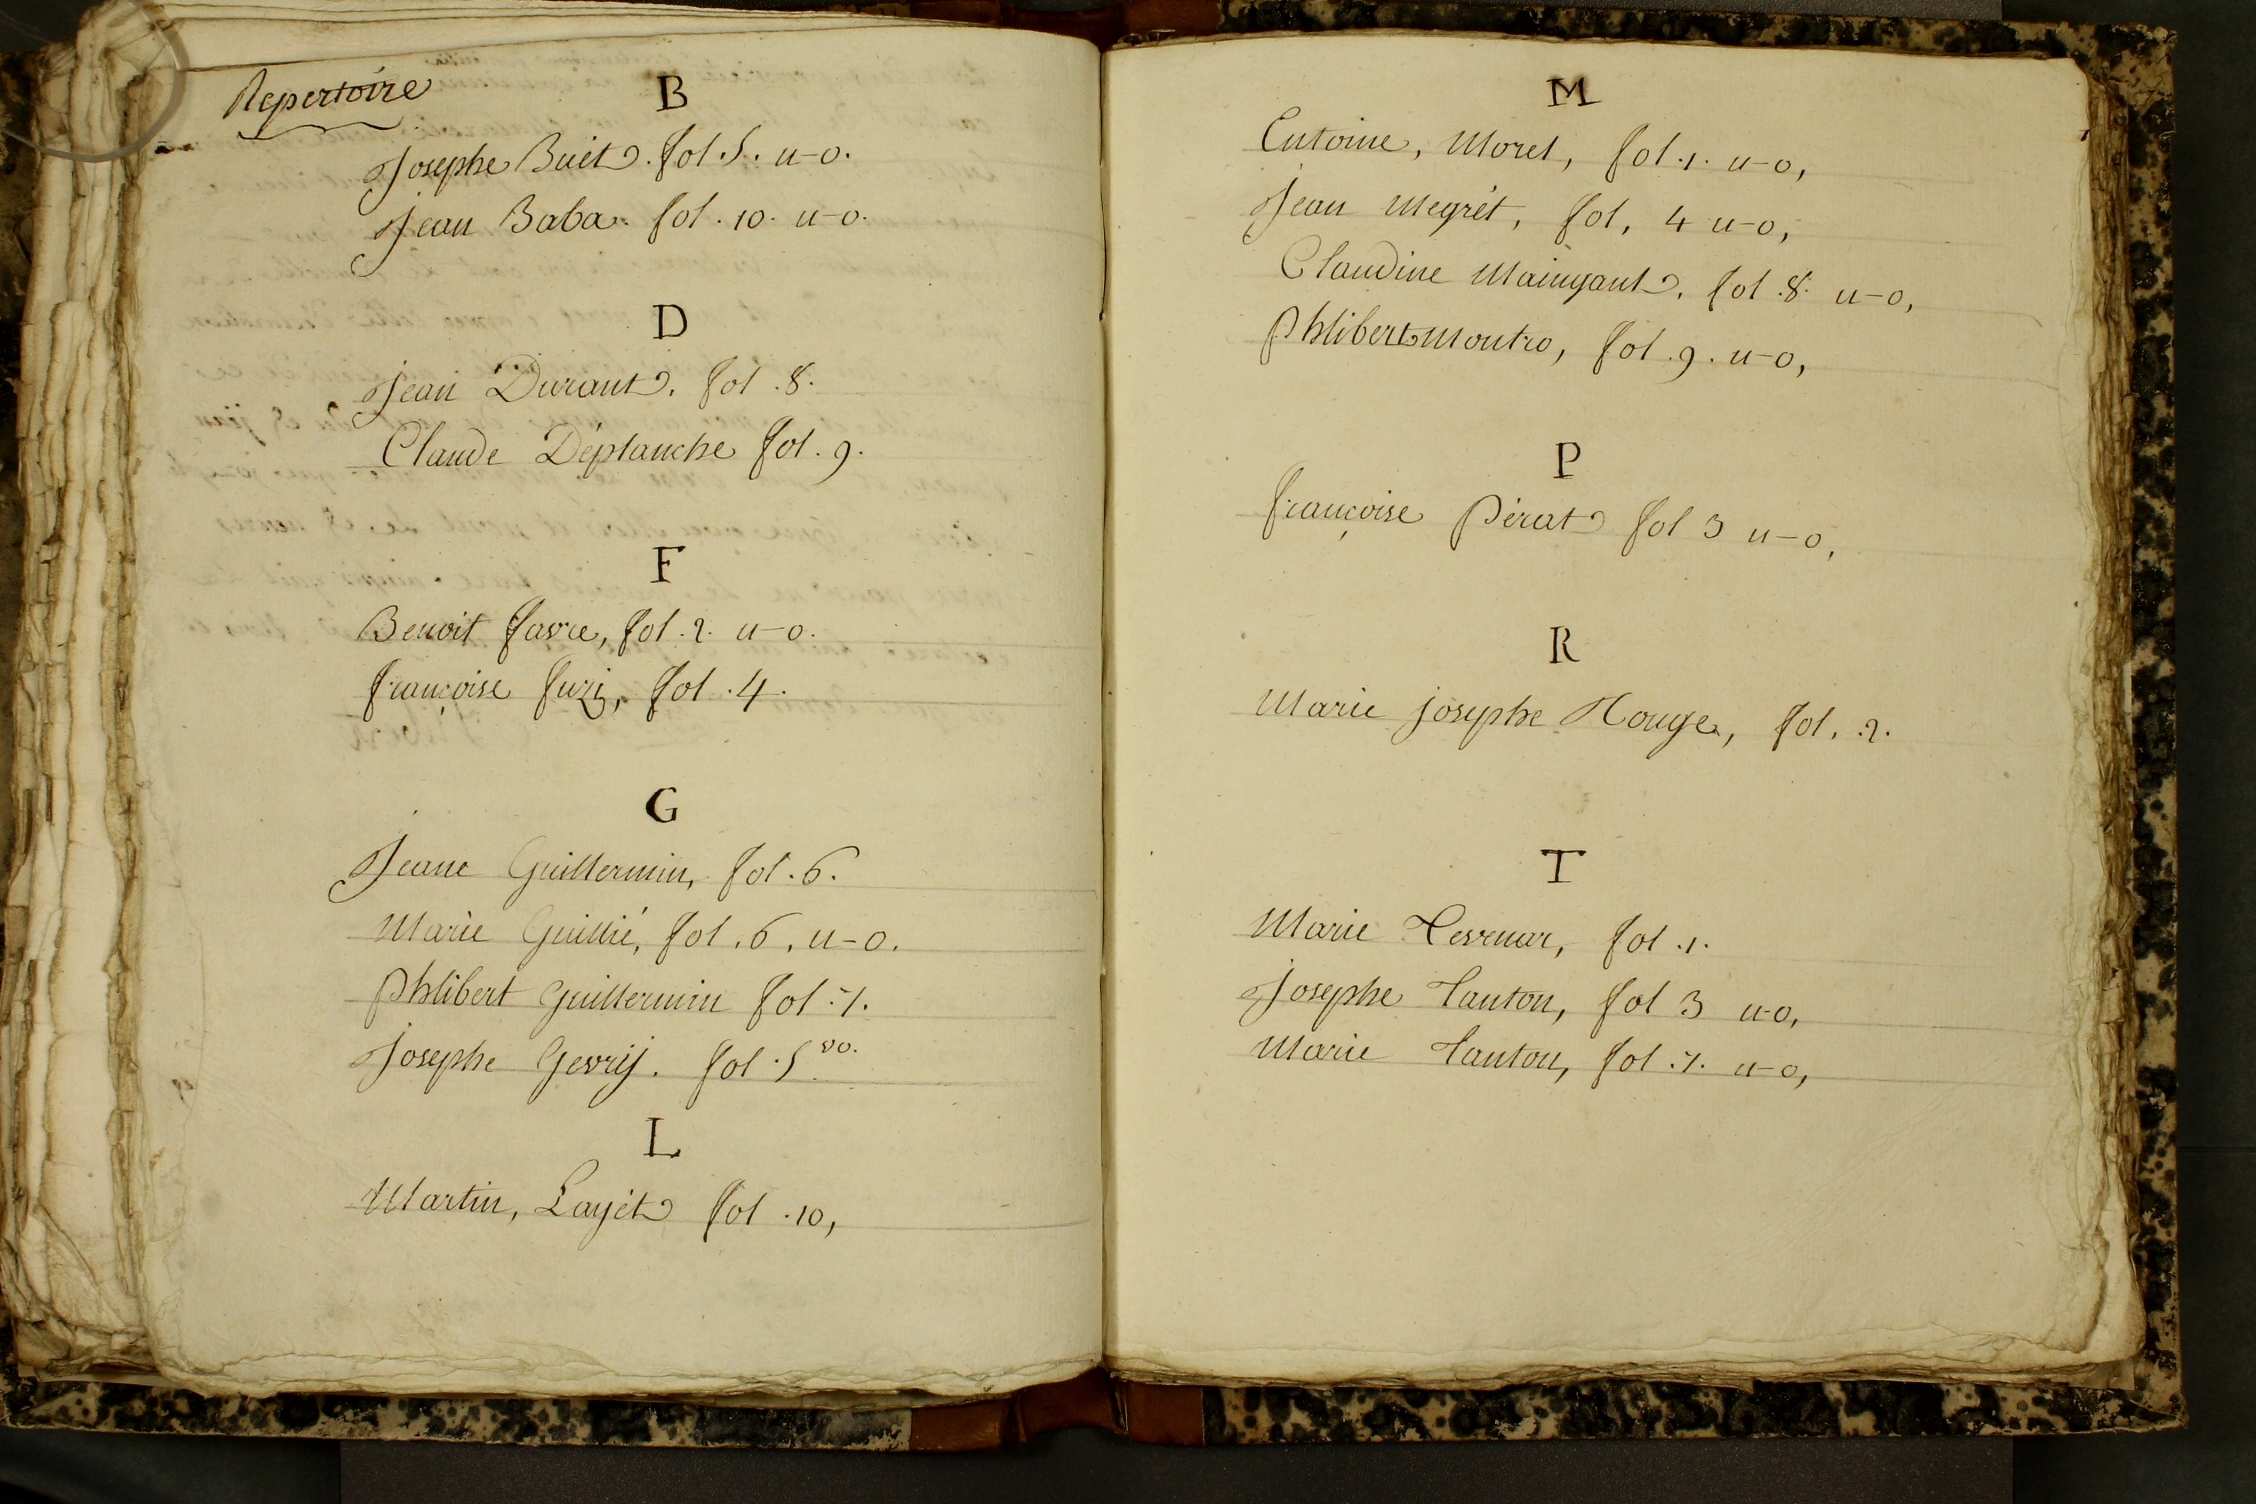 Repertoire
B
Josephe Buet. fol. 5. u-o.
Jean Baba. fol. 10. u-o.
D
Jean Durant. fol. 8.
Claude Déplanche fol. 9.
F
Benoit favre, fol. 2. u-o.
françoise furi, fol. 4.
G
Jeane Guillermin, fol. 6.
Marie Guillié, fol. 6, u-o.
Phlibert Guillermin fol. 7.
Josephe Gevrij. fol. 5 vo.
L
Martin, Layét fol. 10,
M
Entoine, Moret, fol. 1. u-o,
Jean Megrét, fol, 4 u-o,
Claudine Maingant, fol. 8. u-o,
Phlibert Moutro, fol. 9. u-o,
P
françoise Pérat fol 3 u-o,
R
Marie josephe Rouge, fol, 2.
T
Marie fol. 1.
Josephe Tanton, fol 3 u-o,
Marie Tanton, fol. 7. u-o,